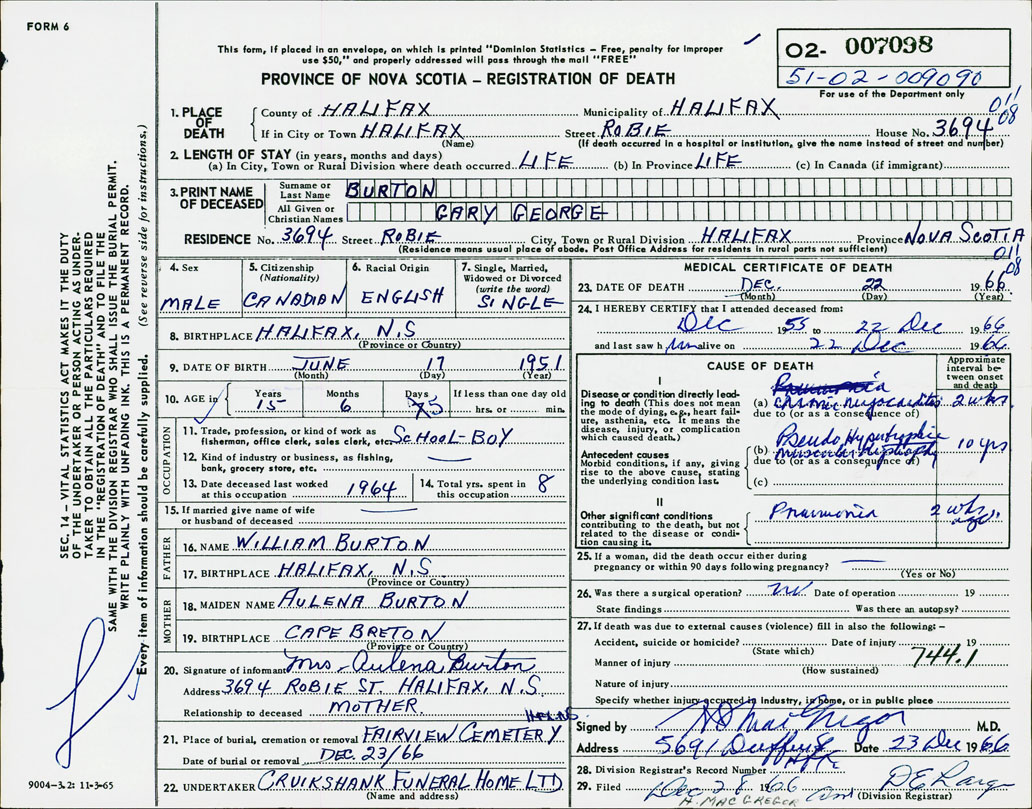 FORM 6
This form, if placed in an envelope, on which is printed "Dominion Statistics – Free, penalty for improper
use $50," and properly addressed will pass through the mail "FREE"
PROVINCE OF NOVA SCOTIA – REGISTRATION OF DEATH
O2- 007098
51-02-009090
For use of the Department only
011
08
1. PLACE OF DEATH
County of HALIFAX Municipality of HALIFAX
If in City or Town HALIFAX Street ROBIE House No. 3694
(Name) (If death occurred in a hospital or institution, give the name instead of street and number)
2. LENGTH OF STAY (in years, months and days)
(a) In City, Town or Rural Division where death occurred LIFE (b) In Province LIFE (c) In Canada (if immigrant)
3. PRINT NAME OF DECEASED
Surname or Last Name BURTON
All Given or Christian Names GARY GEORGE
RESIDENCE No. 3694 Street ROBIE City, Town or Rural Division HALIFAX Province NOVA SCOTIA
(Residence means usual place of abode. Post Office Address for residents in rural parts not sufficient)
011
08
4. Sex MALE
5. Citizenship (Nationality) CANADIAN
6. Racial Origin ENGLISH
7. Single, Married, Widowed or Divorced (write the word) SINGLE
8. BIRTHPLACE HALIFAX, N.S
(Province or Country)
9. DATE OF BIRTH JUNE 17 1951
(Month) (Day) (Year)
10. AGE in Years Months Days If less than one day old
15 6 5 hrs. or min.
OCCUPATION
11. Trade, profession, or kind of work as fisherman, office clerk, sales clerk, etc. SCHOOL-BOY
12. Kind of industry or business, as fishing, bank, grocery store, etc.
13. Date deceased last worked at this occupation 1964
14. Total yrs. spent in this occupation 8
15. If married give name of wife or husband of deceased
FATHER
16. NAME WILLIAM BURTON
17. BIRTHPLACE HALIFAX, N.S.
(Province or Country)
MOTHER
18. MAIDEN NAME AULENA BURTON
19. BIRTHPLACE CAPE BRETON
(Province or Country)
20. Signature of informant Mrs - Aulena Burton
Address 3694 ROBIE ST. HALIFAX, N.S.
Relationship to deceased MOTHER.
21. Place of burial, cremation or removal FAIRVIEW CEMETERY
Date of burial or removal DEC. 23/66
22. UNDERTAKER CRUIKSHANK FUNERAL HOME LTD
(Name and address)
MEDICAL CERTIFICATE OF DEATH
23. DATE OF DEATH DEC. 22 1966
(Month) (Day) (Year)
24. I HEREBY CERTIFY that I attended deceased from:
Dec 1955 to 22 Dec 1966
and last saw him alive on 22 Dec 1966
CAUSE OF DEATH
Approximate interval between onset and death
I
Disease or condition directly leading to death (This does not mean the mode of dying, e.g., heart failure, asthenia, etc. It means the disease, injury, or complication which caused death.)
Pneumonia
(a) Chronic myocarditis 2 wks.
due to (or as a consequence of)
Antecedent causes
Morbid conditions, if any, giving rise to the above cause, stating the underlying condition last.
Pseudo Hypertrophic
(b) muscular dystrophy 10 yrs
due to (or as a consequence of)
(c)
II
Other significant conditions contributing to the death, but not related to the disease or condition causing it.
Pneumonia 2 wks ago
25. If a woman, did the death occur either during pregnancy or within 90 days following pregnancy?
(Yes or No)
26. Was there a surgical operation? no Date of operation 19
State findings Was there an autopsy?
27. If death was due to external causes (violence) fill in also the following:–
Accident, suicide or homicide? Date of injury 19
(State which) 744.1
Manner of injury
(How sustained)
Nature of injury
Specify whether injury occurred in industry, in home, or in public place
Signed by H S MacGregor M.D.
Address 5691 Date 23 Dec 1966
28. Division Registrar's Record Number
29. Filed Dec 28 1966
(Division Registrar)
A. MACGREGOR
SEC. 14 – VITAL STATISTICS ACT MAKES IT THE DUTY
OF THE UNDERTAKER OR PERSON ACTING AS UNDER-
TAKER TO OBTAIN ALL THE PARTICULARS REQUIRED
IN THE "REGISTRATION OF DEATH" AND TO FILE THE
SAME WITH THE DIVISION REGISTRAR WHO SHALL ISSUE THE BURIAL PERMIT.
WRITE PLAINLY WITH UNFADING INK. THIS IS A PERMANENT RECORD.
Every item of information should be carefully supplied. (See reverse side for instructions.)
9004-3.2: 11-3-65